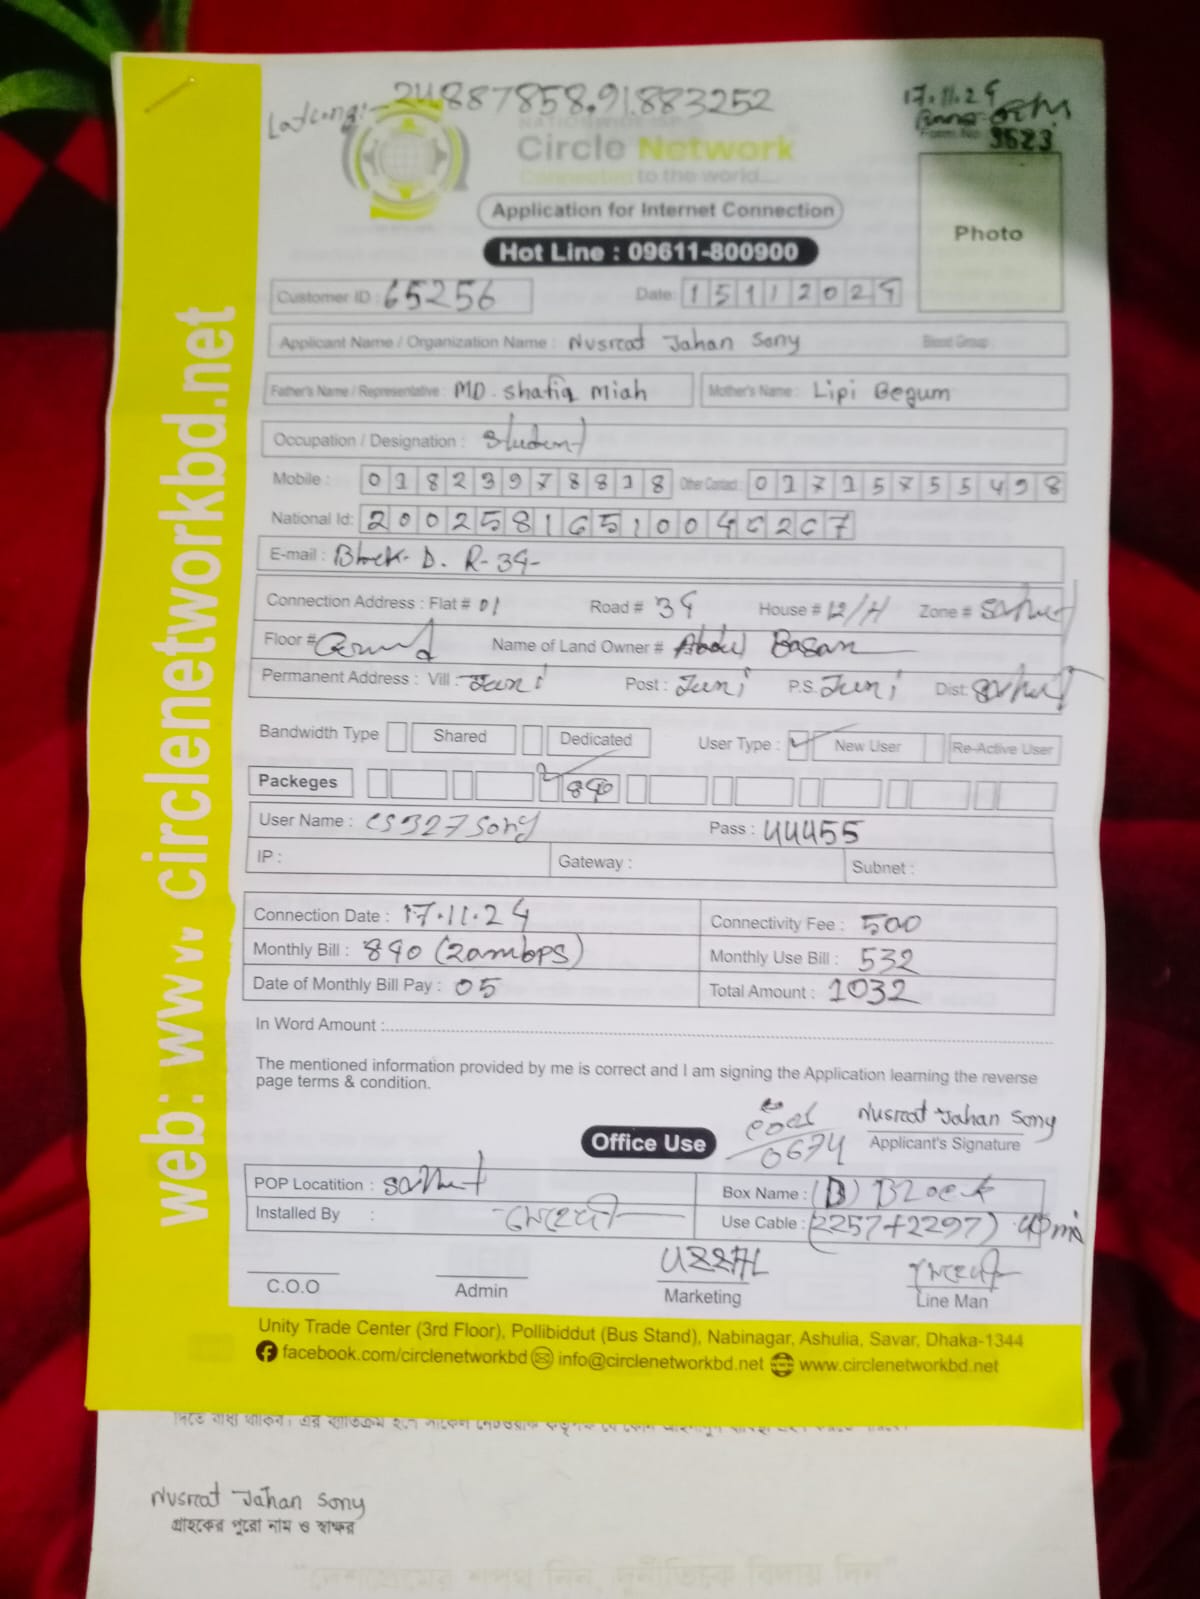 Lat Long:- 24887858,91.883252
17.11.24
Form No 3623
Circle Network
Connected to the world....
Application for Internet Connection
Photo
Hot Line : 09611-800900
Customer ID : 65256 Date: 15112024
Applicant Name / Organization Name : Nusrat Jahan Sony Blood Group :
Father's Name / Representative : MD. Shafiq Miah Mother's Name : Lipi Begum
Occupation / Designation : Student
Mobile : 01823978818 Other Contact : 01715755498
National Id:
E-mail : Block- D. R-34-
Connection Address : Flat # 01 Road # 34 House # 12/H Zone #
Floor # Ground Name of Land Owner # Abdul
Permanent Address : Vill : Juri Post : Juri P.S. Juri Dist:
Bandwidth Type Shared Dedicated User Type : New User Re-Active User
Packeges 840
User Name : cs327sony Pass : 44455
IP : Gateway : Subnet :
Connection Date : 17.11.24 Connectivity Fee : 500
Monthly Bill : 840 (20mbps) Monthly Use Bill : 532
Date of Monthly Bill Pay : 05 Total Amount : 1032
In Word Amount :
The mentioned information provided by me is correct and I am signing the Application learning the reverse
page terms & condition.
Nusrat Jahan Sony
Office Use 0674 Applicant's Signature
POP Locatition : Box Name : (B) Block
Installed By : Use Cable : (2257+2297)
C.O.O Admin Marketing Line Man
Unity Trade Center (3rd Floor), Pollibiddut (Bus Stand), Nabinagar, Ashulia, Savar, Dhaka-1344
facebook.com/circlenetworkbd info@circlenetworkbd.net www.circlenetworkbd.net
web: www.circlenetworkbd.net
Nusrat Jahan Sony
গ্রাহকের পুরো নাম ও স্বাক্ষর